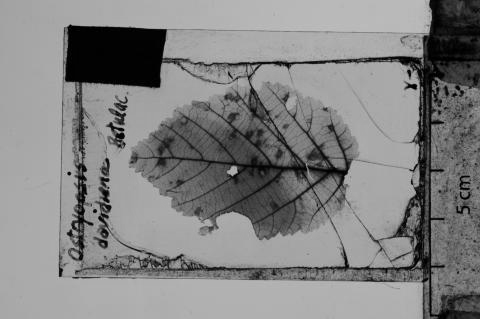 Ostryopsis
davidiana Betulac.
5 cm